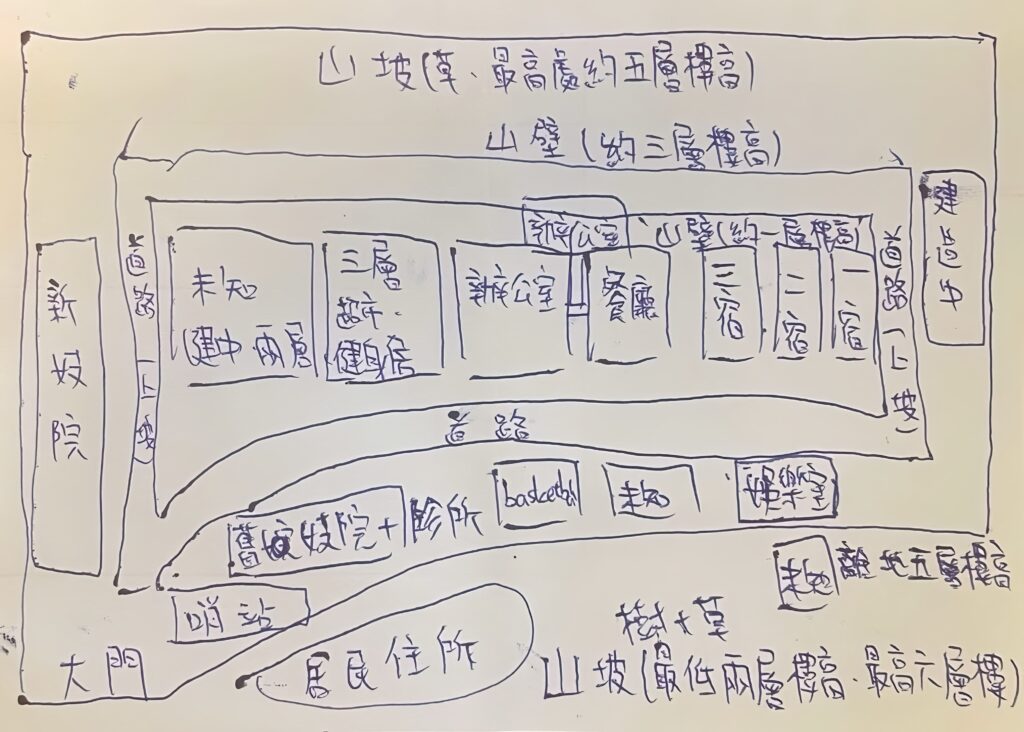 山坡(草、最高處約五層樓高)
山壁(約三層樓高)
建造中
辦公室
山壁(約一層樓高)
道路(上坡)
未知
建中 兩層
三層
超市、
健身房
辦公室
餐廳
三宿
二宿
一宿
道路(上坡)
新妓院
道路
basketball
未知
娛樂室
舊妓院+診所
未知
離地五層樓高
哨站
樹+草
居民住所
大門
山坡(最低兩層樓高、最高六層樓)